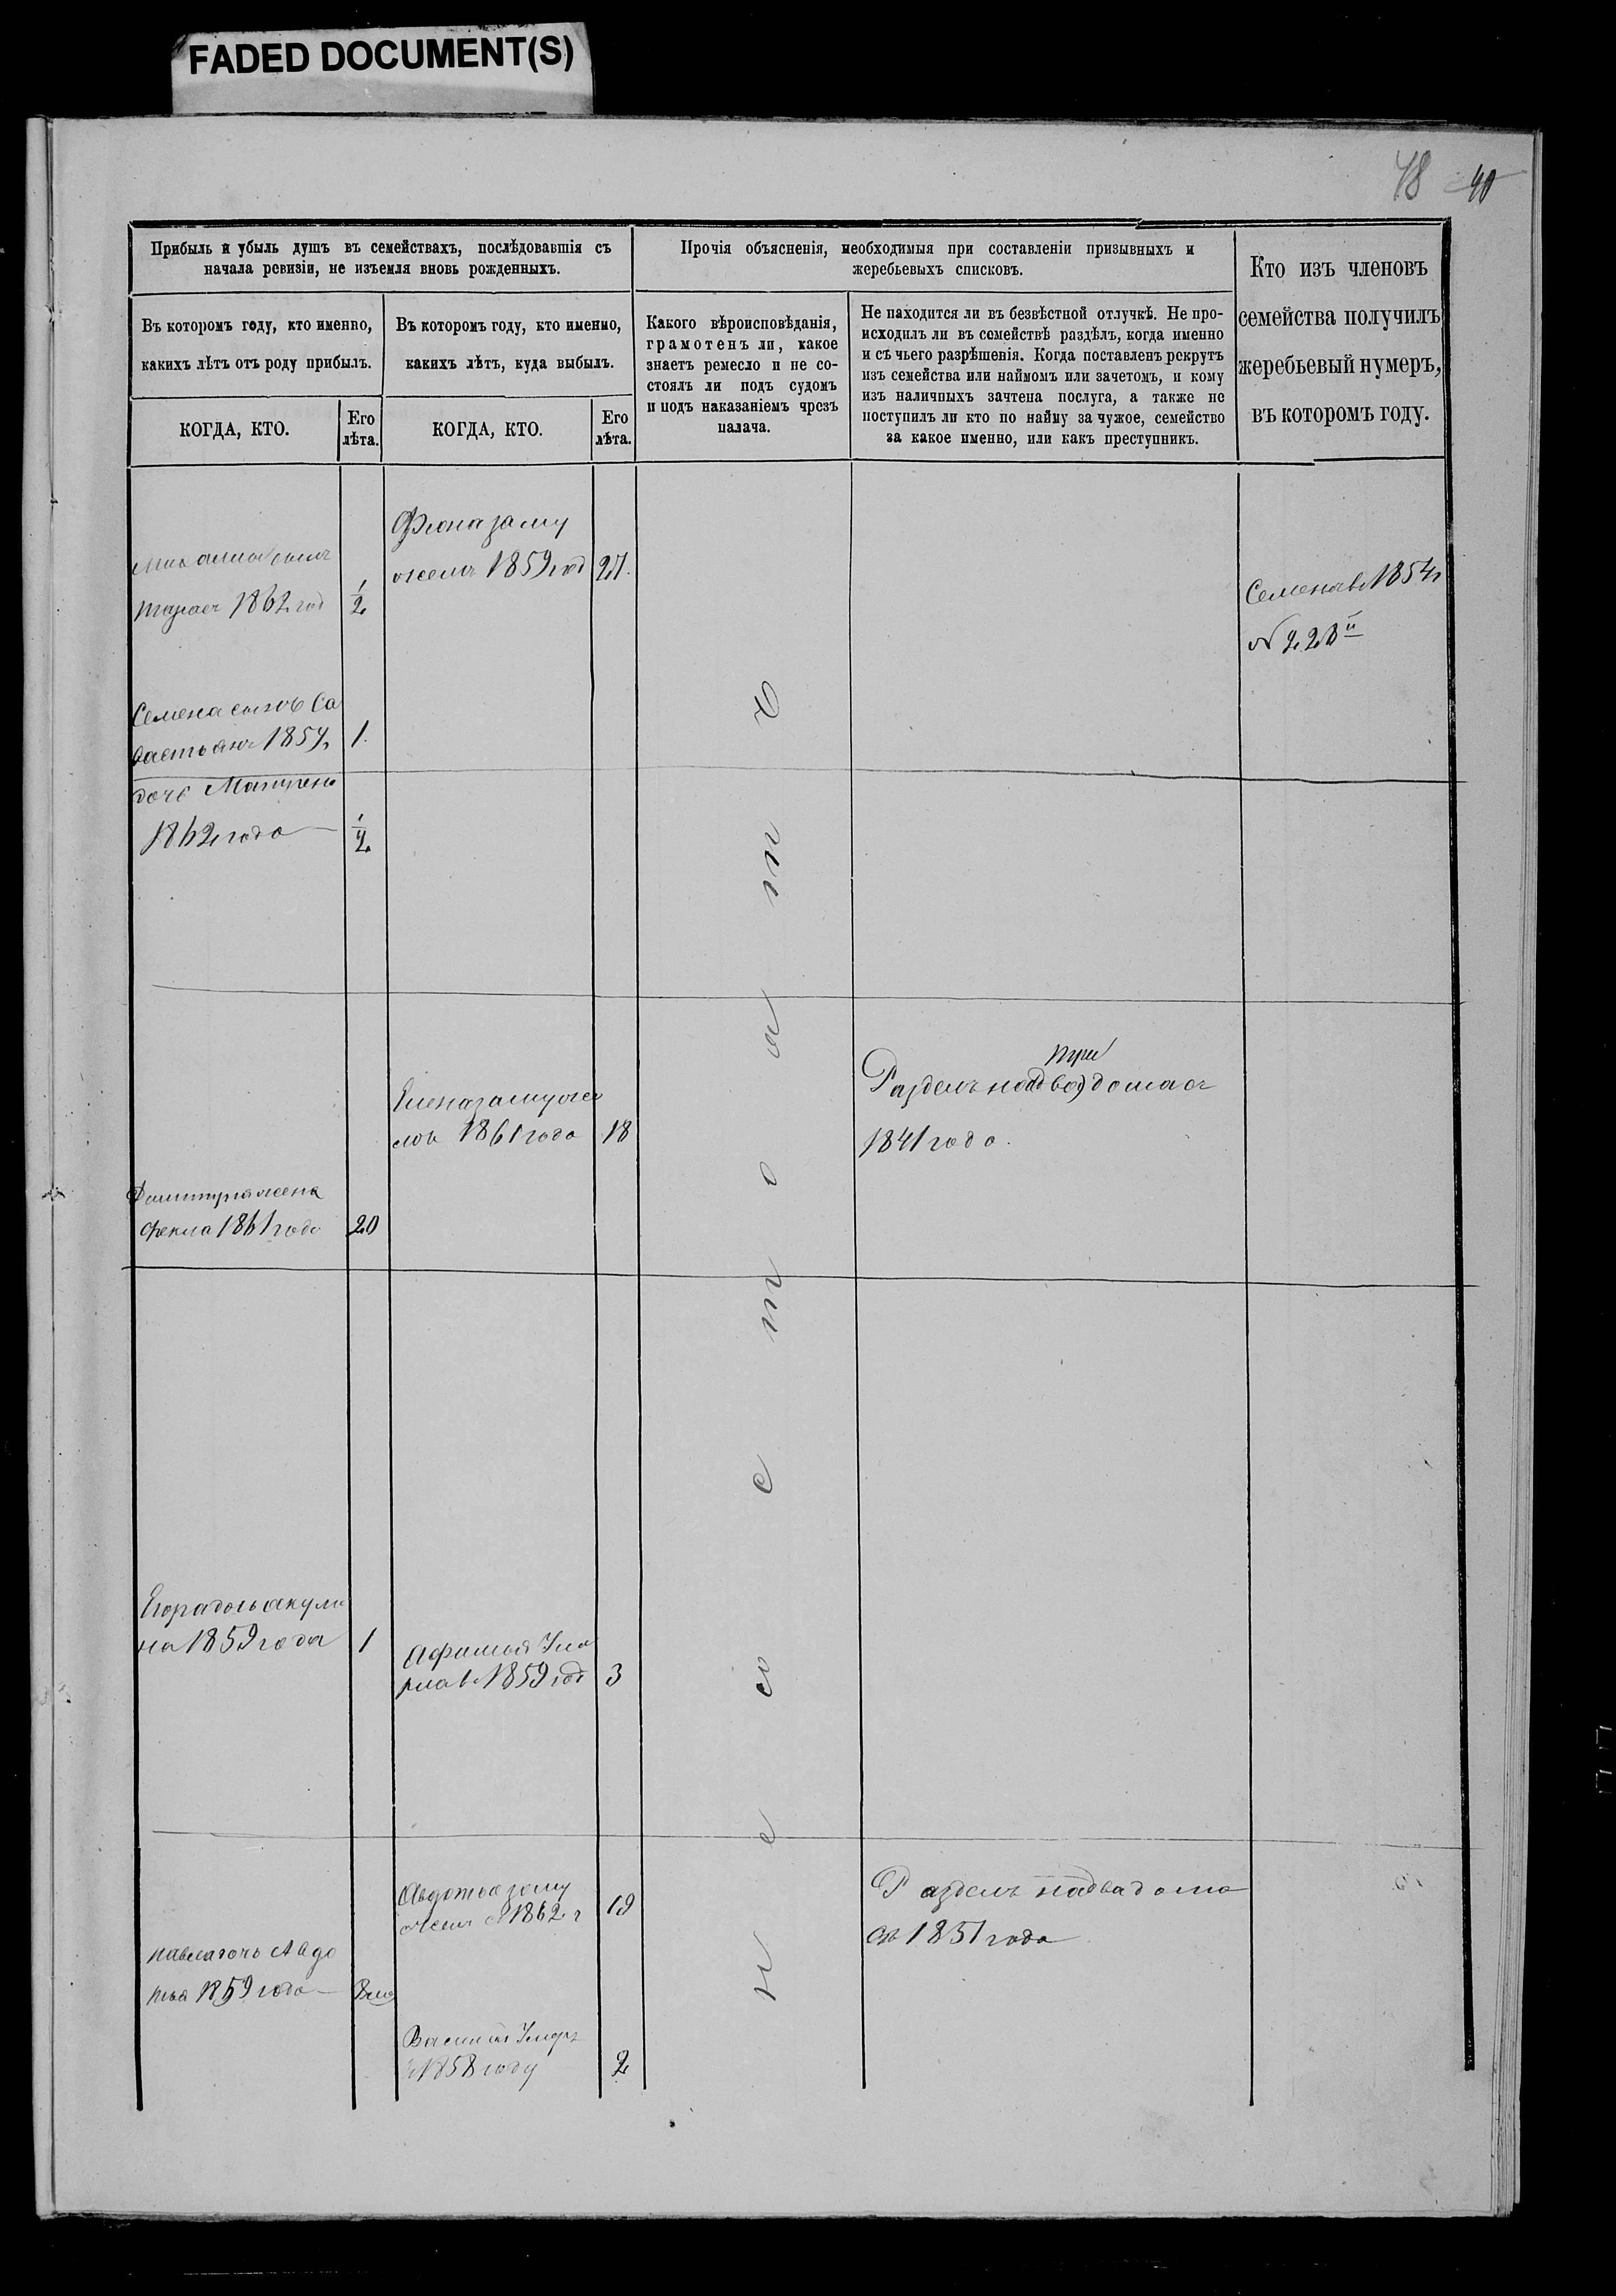 FADED DOCUMENT(S)
48 40
Прибыль и убыль душъ въ семействахъ, послѣдовавшія съ
начала ревизіи, не изъемля вновь рожденныхъ.
Въ которомъ году, кто именно,
какихъ лѣтъ отъ роду прибылъ.
КОГДА, КТО.
Его
лѣта.
Въ которомъ году, кто именно,
какихъ лѣтъ, куда выбылъ.
КОГДА, КТО.
Его
лѣта.
Прочія объясненія, необходимыя при составленіи призывныхъ и
жеребьевыхъ списковъ.
Какого вѣроисповѣданія,
грамотенъ ли, какое
знаетъ ремесло и не со-
стоялъ ли подъ судомъ
и подъ наказаніемъ чрезъ
палача.
Не находится ли въ безвѣстной отлучкѣ. Не про-
исходилъ ли въ семействѣ раздѣлъ, когда именно
и съ чьего разрѣшенія. Когда поставленъ рекрутъ
изъ семейства или наймомъ или зачетомъ, и кому
изъ наличныхъ зачтена послуга, а также не
поступилъ ли кто по найму за чужое, семейство
за какое именно, или какъ преступникъ.
Кто изъ членовъ
семейства получилъ
жеребьевый нумеръ,
въ которомъ году.
Фіона заму
жемъ 1859 год 27.
1862 год 1/2
Семенъ в 1854 г
№ 228й
Семена сынъ Са
вастьянъ 1857 1.
дочь Матрена
1862 года 1/2
Елена замуже
мъ 1861 года 18
три
Разделъ на два дома съ
1841 года.
Димитрия жена
Фекла 1861 года 20
Егора дочь акули
на 1859 года 1
Афимья Уме
рла в 1859 год 3
Авдотья заму
жемъ в 1862 г 19
Разделъ на два дома
съ 1851 года
павла дочь Авдо
тья 1859 года
Василий Умеръ
в 1858 году 2